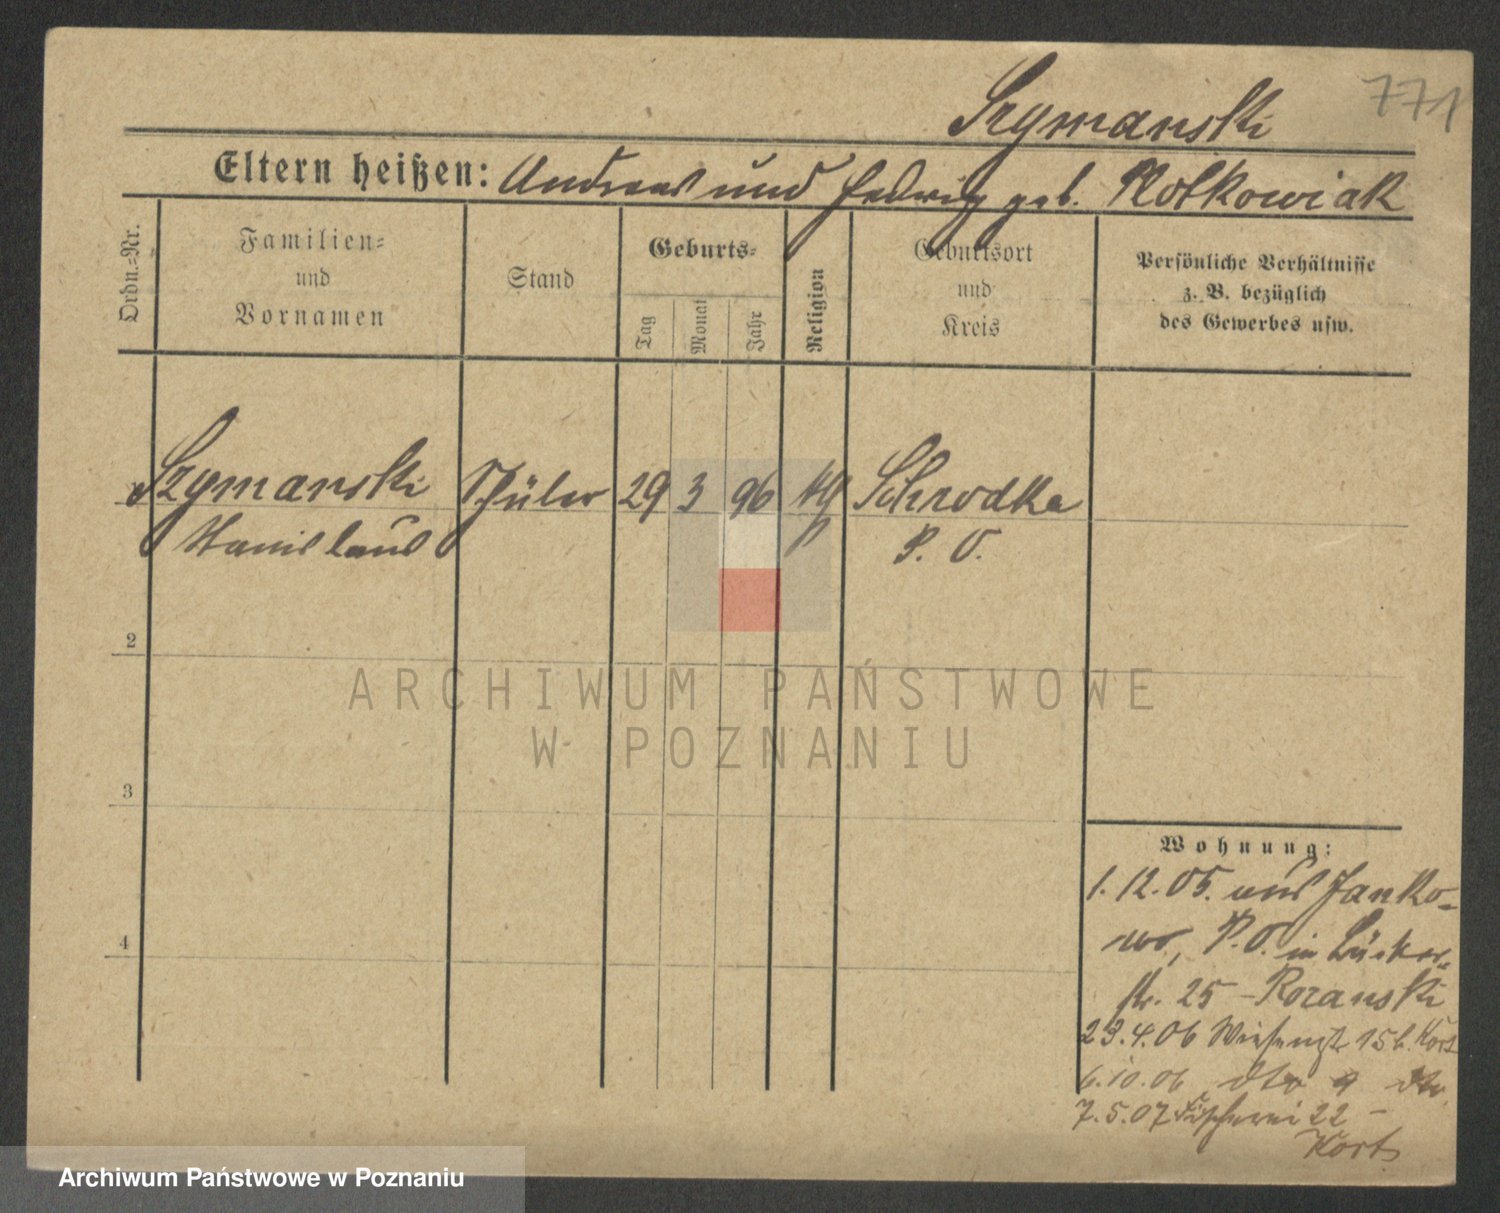 771
Szymanski
Eltern heißen: Andreas und Hedwig geb. Plotkowiak
Ordn.-Nr.
Familien-
und
Vornamen
Stand
Geburts-
Tag
Monat
Jahr
Religion
Geburtsort
und
Kreis
Persönliche Verhältnisse
z. B. bezüglich
des Gewerbes usw.
Szymanski Schüler 29 3 96 Schrodka
Stanislaus P. O.
2
3
4
Wohnung:
1.12.05. aus Janko-
wo, P. O. in Bäcker-
str. 25 - Rozanski
23.4.06 Wiesenstr 15 b. Kort
6.10.06 dto 9 dto
7.5.07 Fischerei 22 -
Kort
ARCHIWUM PAŃSTWOWE
W POZNANIU
Archiwum Państwowe w Poznaniu